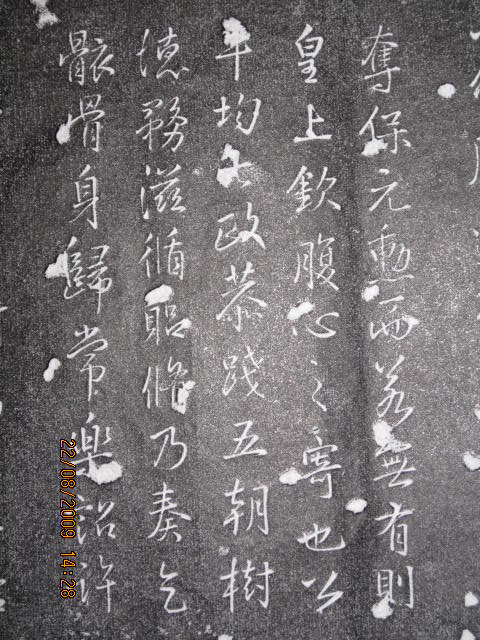 奪保元勳而若無有則
皇上欽腹心之寄也公
平均政恭踐五朝樹
德務滋循修乃奏乞
骸骨身歸常樂詔許
22/08/2009 14:28